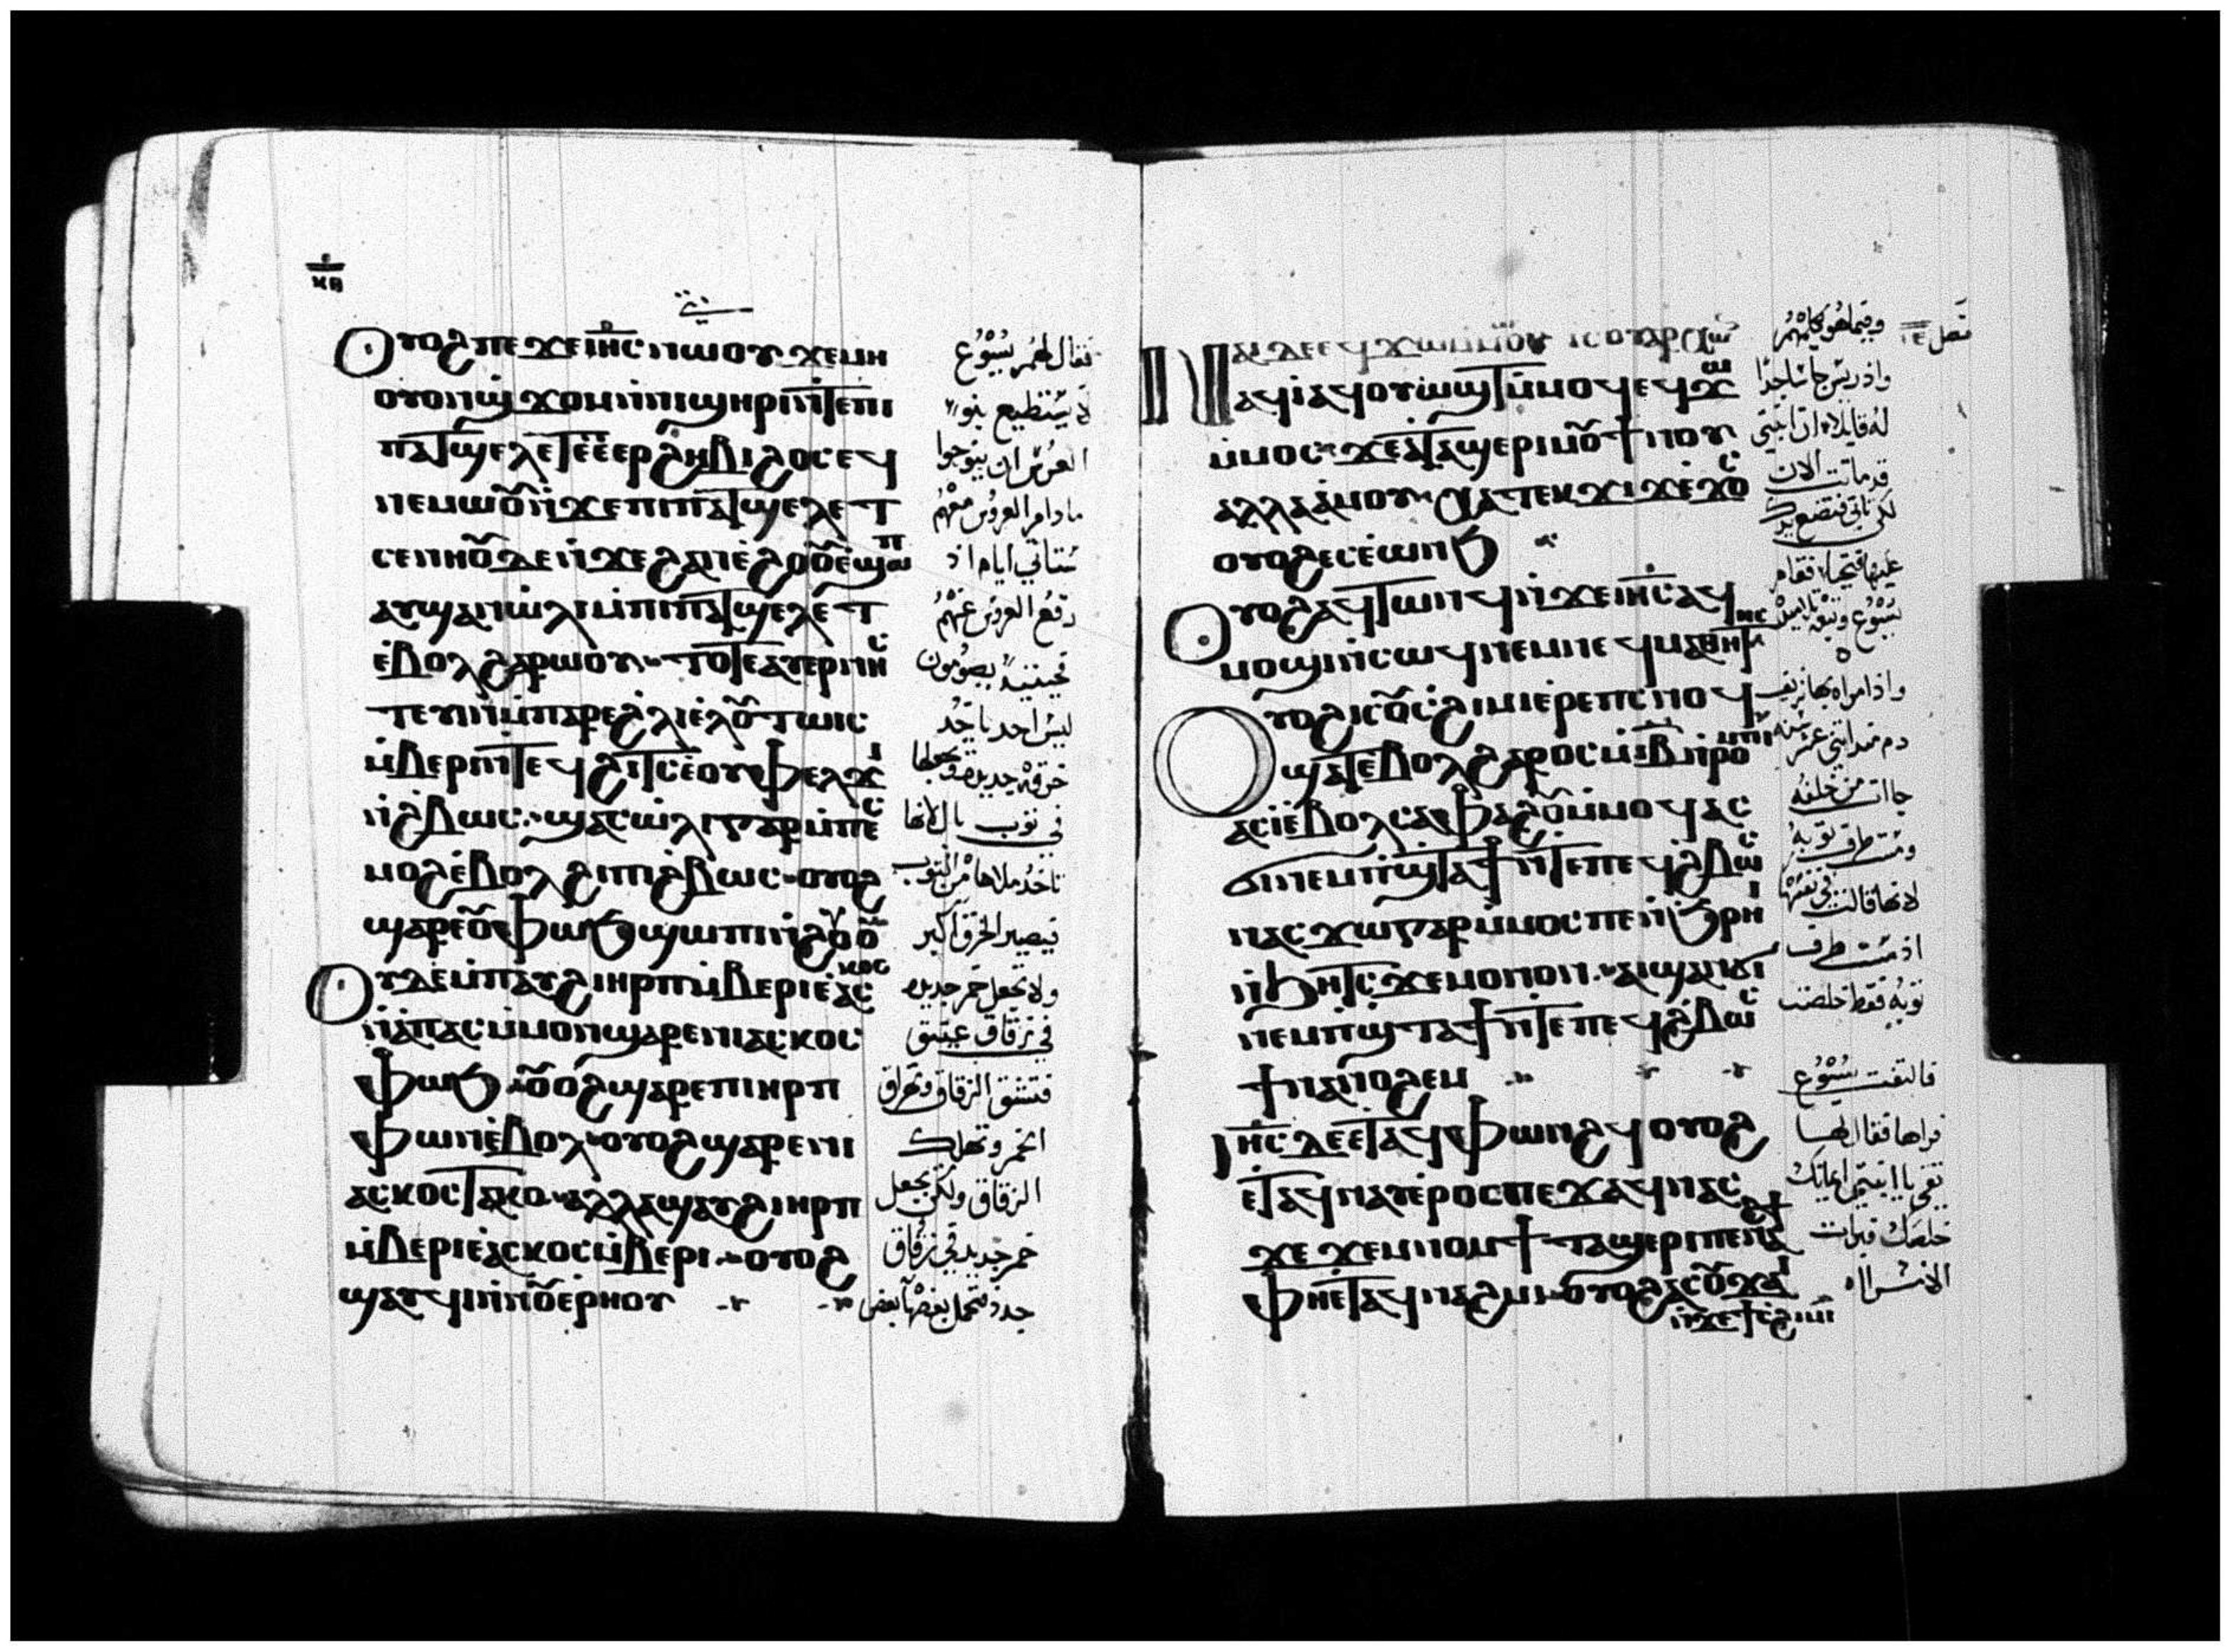 ⲕⲑ
ⲟⲩⲟϩ ⲡⲉϫⲉ ⲓⲏ̅ⲥ̅ ⲛⲱⲟⲩ ϫⲉ ⲙⲏ
ⲟⲩⲟⲛϣϫⲟⲙ ⲛ̀ⲛⲓϣⲏⲣⲓ ⲛ̀ⲧⲉⲡⲓ
ⲡⲁⲧϣⲉⲗⲉⲧ ⲉ̀ⲉⲣϩⲏⲃⲓ ϩⲟⲥ ⲉϥ
ⲛⲉⲙⲱⲟⲩ ⲛ̀ϫⲉ ⲡⲓⲡⲁⲧϣⲉⲗⲉⲧ
ⲥⲉⲛⲏⲟⲩ ⲇⲉ ⲛ̀ϫⲉ ϩⲁⲛⲉ̀ϩⲟⲟⲩ ⲉ̀ϣⲱⲡ
ⲁⲩϣⲁⲛⲱ̀ⲗⲓ ⲙ̀ⲡⲓⲡⲁⲧϣⲉⲗⲉⲧ
ⲉ̀ⲃⲟⲗ ϩⲁⲣⲱⲟⲩ ⲧⲟⲧⲉ ⲉⲩⲉⲣⲛⲏⲥ
ⲧⲉⲩⲓⲛ ⲙ̀ⲡⲁⲣⲉ ϩⲗⲓ ϩⲓⲟⲩ ⲧⲱⲓⲥ
ⲙ̀ⲃⲉⲣⲓ ⲛ̀ⲧⲉϥϩⲓⲧⲥ ⲉ̀ⲟⲩⲫⲉⲗϫⲓ
ⲛ̀ϩⲃⲱⲥ ϣⲁⲥⲱ̀ⲗⲓ ⲅⲁⲣ ⲙ̀ⲡⲉⲥ
ⲙⲟϩ ⲉ̀ⲃⲟⲗ ϩⲓ ⲡⲓϩⲃⲱⲥ ⲟⲩⲟϩ
ϣⲁⲣⲉ ⲟⲩⲫⲱϧ ϣⲱⲡⲓ ⲛ̀ϩⲟⲩⲟ
ⲟⲩⲇⲉ ⲙ̀ⲡⲁⲩϩⲓ ⲏⲣⲡ ⲙ̀ⲃⲉⲣⲓ ⲉ̀ⲁⲥⲕⲟⲥ
ⲛ̀ⲁ̀ⲡⲁⲥ ⲙ̀ⲙⲟⲛ ϣⲁⲣⲉ ⲛⲓⲁⲥⲕⲟⲥ
ⲫⲱϧ ⲟⲩⲟϩ ϣⲁⲣⲉ ⲡⲓⲏⲣⲡ
ⲫⲱⲛ ⲉ̀ⲃⲟⲗ ⲟⲩⲟϩ ϣⲁⲣⲉ ⲛⲓ
ⲁⲥⲕⲟⲥ ⲧⲁⲕⲟ ⲁⲗⲗⲁ ϣⲁⲩϩⲓ ⲏⲣⲡ
ⲙ̀ⲃⲉⲣⲓ ⲉ̀ⲁⲥⲕⲟⲥ ⲙ̀ⲃⲉⲣⲓ ⲟⲩⲟϩ
ϣⲁⲩϥⲓ ⲛ̀ⲛⲟⲩⲉ̀ⲣⲏⲟⲩ
فقال لهم يسوع
لا يستطيع بنو
العرس ان ينوحوا
ما دام العروس معهم
ستاتي ايام اذ
رفع العروس عنهم
حينيذ يصومون
ليس احد ياخذ
خرقه جديده ويجعلها
في ثوب بال لانها
تاخذ ملاها من الثوب
فيصير الخرق اكبر
ولا تجعل خمر جديده
في زقاق عتيق
فتنشق الزقاق وتهراق
الخمر وتهلك
الزقاق ولكن تجعل
خمر جديد في زقاق
جدد فتحمل بعضها بعض
ⲛⲁⲓ ⲇⲉ ⲉϥϫⲱ ⲙ̀ⲙⲱⲟⲩ
ⲁϥⲓ̀ ⲁϥⲟⲩⲱϣⲧ ⲙ̀ⲙⲟϥ ⲉϥϫⲱ
ⲙ̀ⲙⲟⲥ ϫⲉ ⲁ̀ⲧⲁϣⲉⲣⲓ ⲙⲟⲩ ϯⲛⲟⲩ
ⲁⲗⲗⲁ ⲁ̀ⲙⲟⲩ ⲭⲁ ⲧⲉⲕϫⲓϫ ⲉ̀ϫⲱⲥ
ⲟⲩⲟϩ ⲉⲥⲉ̀ⲱⲛϧ
ⲟⲩⲟϩ ⲁϥⲧⲱⲛϥ ⲛ̀ϫⲉ ⲓⲏ̅ⲥ̅ ⲁϥ
ⲙⲟϣⲓ ⲛ̀ⲥⲱϥ ⲛⲉⲙ ⲛⲉϥⲙⲁⲑⲏⲧⲏⲥ
ⲟⲩⲟϩ ⲓⲥ ⲟⲩⲥϩⲓⲙⲓ ⲉ̀ⲣⲉ ⲡⲥⲛⲟϥ
ϣⲁⲧ ⲉ̀ⲃⲟⲗ ϩⲁⲣⲟⲥ ⲛ̀ⲓ̅ⲃ̅ ⲛ̀ⲣⲟⲙⲡⲓ
ⲁⲥⲓ̀ ⲉ̀ⲃⲟⲗ ⲥⲁⲫⲁϩⲟⲩ ⲙ̀ⲙⲟϥ ⲁⲥ
ϭⲓ ⲛⲉⲙ ⲡ̀ϣⲧⲁϯ ⲛ̀ⲧⲉ ⲡⲉϥϩⲃⲱⲥ
ⲛⲁⲥϫⲱ ⲅⲁⲣ ⲙ̀ⲙⲟⲥ ⲡⲉ ⲛ̀ϧⲣⲏⲓ
ⲛ̀ϧⲏⲧⲥ ϫⲉ ⲙⲟⲛⲟⲛ ⲁⲓϣⲁⲛϭⲓ
ⲛⲉⲙ ⲡ̀ϣⲧⲁϯ ⲛ̀ⲧⲉ ⲡⲉϥϩⲃⲱⲥ
ϯⲛⲁⲛⲟϩⲉⲙ
ⲓⲏ̅ⲥ̅ ⲇⲉ ⲉⲧⲁϥⲫⲱⲛϩϥ ⲟⲩⲟϩ
ⲉⲧⲁϥⲛⲁⲩ ⲉ̀ⲣⲟⲥ ⲡⲉϫⲁϥ ⲛⲁⲥ
ϫⲉ ϫⲉⲙⲛⲟⲙϯ ⲧⲁϣⲉⲣⲓ ⲡⲉⲛⲁϩϯ
ⲡⲉⲧⲁϥⲛⲁϩⲙⲓ ⲟⲩⲟϩ ⲁⲥⲟⲩϫⲁⲓ
ⲛ̀ϫⲉ ϯⲥϩⲓⲙⲓ
فصل
وفيما هو يكلمهم
واذ رئيس جا ساجدا
له قايلا ان ابنتي
قد ماتت الان
لكن تاتي فتضع يدك
عليها فتحيا فقام
يسوع وتبعه تلاميذه
واذا مراه بها نزيف
دم منذ اثني عشر سنه
جاات من خلفه
ومست طرف ثوبه
لانها قالت في نفسها
اذ مسست طرف
ثوبه فقط خلصت
فالتفت يسوع
فراها فقال لها
ثقي يا ابنتي ايمانك
خلصك فبرات
الامراه